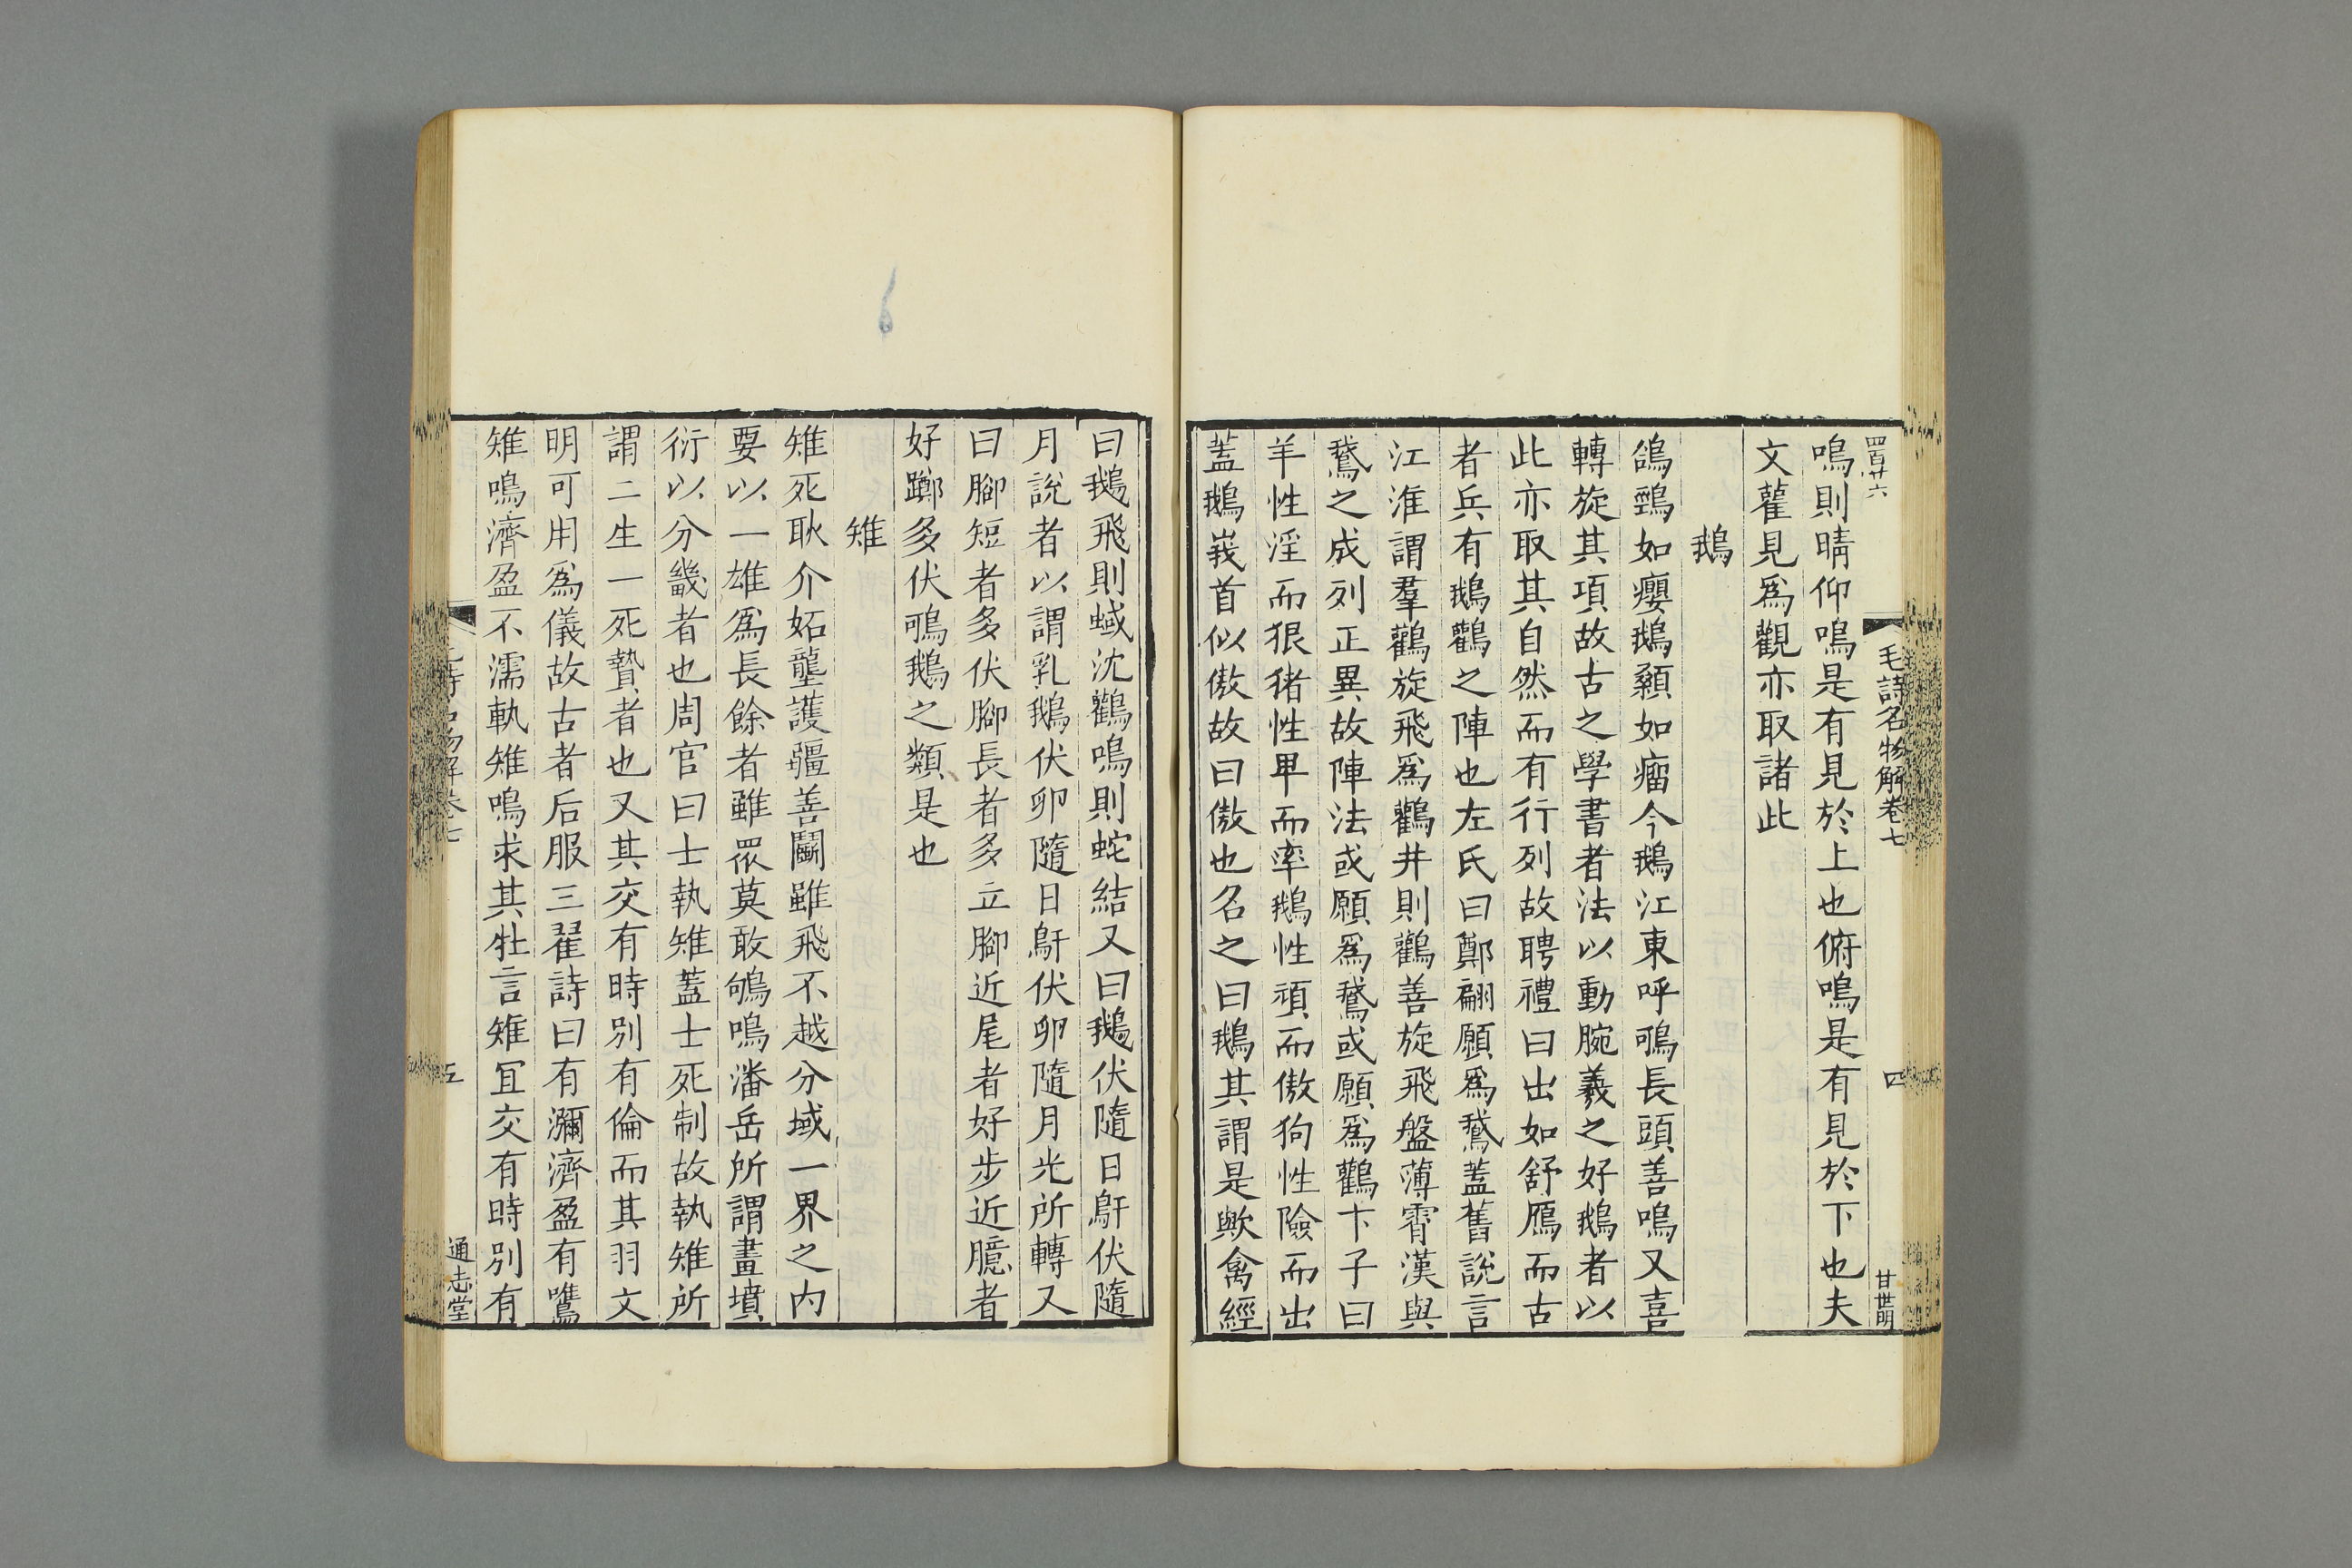 毛詩名物解卷七
四
鳴則晴仰鳴是有見於上也俯鳴是有見於下也夫
文雚見爲觀亦取諸此
鵝
鴿鵛如癭鵝顙如瘤今鵝江東呼鳴長頭善鳴又喜
轉旋其項故古之學書者法以動腕羲之好鵝者以
此亦取其自然而有行列故聘禮曰出如舒鴈而古
者兵有鵝鸛之陣也左氏曰鄭翩願爲鵞蓋舊說言
江淮謂羣鸛旋飛爲鸛井則鸛善旋飛盤薄霄漢與
鵞之成列正異故陣法或願爲鵞或願爲鸛卞子曰
羊性淫而狠猪性卑而率鵝性頑而傲狗性險而出
蓋鵝峩首似傲故曰傲也名之曰鵝其謂是歟禽經
曰鵝飛則蜮沈鸛鳴則蛇結又曰鵝伏隨日鳱伏隨
月說者以謂乳鵝伏卵隨日鳱伏卵隨月光所轉又
曰腳短者多伏腳長者多立腳近尾者好步近臆者
好躑多伏鳴鵝之類是也
雉
雉死耿介妬壟護疆善鬬雖飛不越分域一界之内
要以一雄爲長餘者雖眾莫敢鴝鳴潘岳所謂畫墳
衍以分畿者也周官曰士執雉蓋士死制故執雉所
謂二生一死贄者也又其交有時别有倫而其羽文
明可用爲儀故古者后服三翟詩曰有瀰濟盈有鷕
雉鳴濟盈不濡軌雉鳴求其牡言雉冝交有時别有
五
通志堂